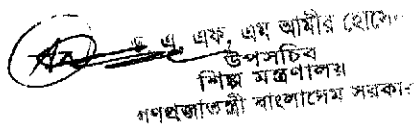 এ, এফ, এম আমীর হোসেন
উপসচিব
শিল্প মন্ত্রণালয়
গণপ্রজাতন্ত্রী বাংলাদেশ সরকার